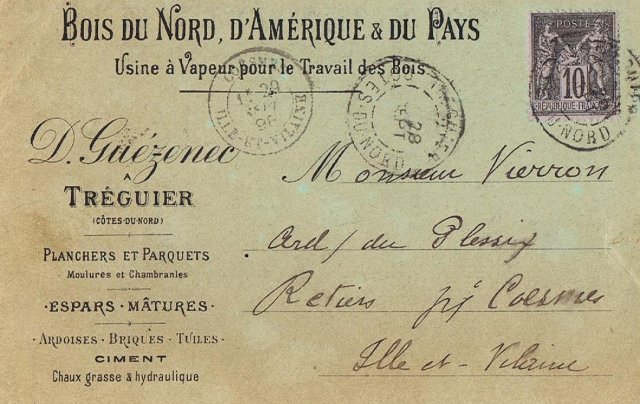 BOIS DU NORD, D'AMÉRIQUE & DU PAYS
Usine à Vapeur pour le Travail des Bois
POSTE
10
RÉPUBLIQUE FRANÇAISE
ILLE-ET-VILAINE
TREGUIER
28
SEPT
COTES-DU-NORD
DU-NORD
D. Guézenec
À
TRÉGUIER
(CÔTES-DU-NORD)
PLANCHERS ET PARQUETS
Moulures et Chambranles
·ESPARS·MÂTURES·
·ARDOISES·BRIQUES·TUILES·
CIMENT
Chaux grasse & hydraulique
Monsieur Vierron
du Plessix
Retiers Coesmes
Ille-et-Vilaine